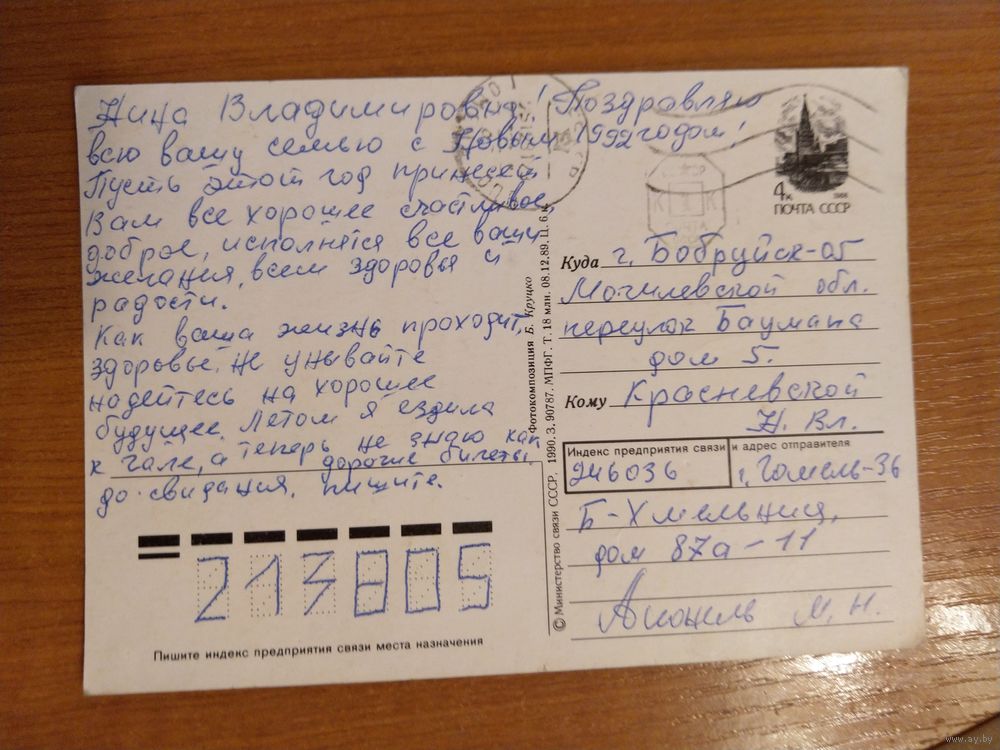 Нина Владимировна! Поздравляю
всю вашу семью с Новым 1992 годом!
Пусть этот год принесет
Вам все хорошее счастливое,
доброе, исполнятся все ваши
желания, всем здоровья и
радости.
Как ваша жизнь проходит,
здоровье, не унывайте
надейтесь на хорошее
будущее. Летом я ездила
к Гале, а теперь не знаю как
дорогие билеты.
до-свидания, пишите.
213805
Пишите индекс предприятия связи места назначения
© Министерство связи СССР, 1990. З. 90787. МПФГ. Т. 18 млн. 08.12.89. Ц. 6 к.
Фотокомпозиция Б. Круцко
4к
1988
ПОЧТА СССР
Куда г. Бобруйск-05
Могилевской обл.
переулок Баумана
дом 5.
Кому Красневской
Н. Вл.
Индекс предприятия связи и адрес отправителя
246036 г. Гомель-36
Б-Хмельниц,
дом 87а-11
М. Н.
www.ay.by